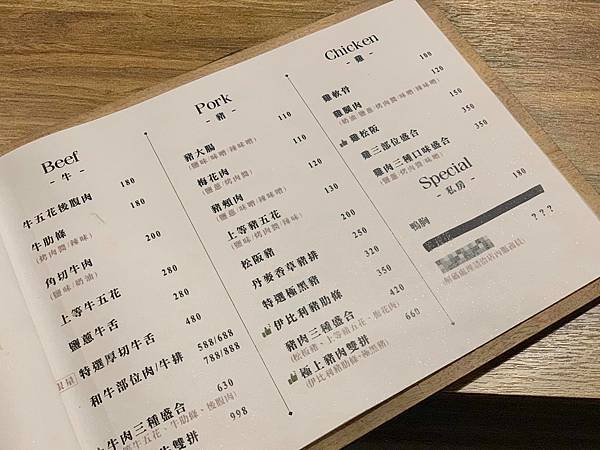 Beef
- 牛 -
牛五花後腹肉 180
牛肋條 180
(烤肉醬/辣味)
角切牛肉 200
(鹽味/奶油)
上等牛五花 280
鹽蔥牛舌 280
特選厚切牛舌 480
和牛部位肉/牛排 588/688
788/888
牛肉三種盛合 630
牛五花、牛肋條、後腹肉)
牛雙拼 998
Pork
- 豬 -
豬大腸 110
(鹽味/味噌/辣味噌)
梅花肉 110
(鹽蔥/烤肉醬)
豬頰肉 120
(鹽蔥/味噌/辣味噌)
上等豬五花 130
(鹽味/烤肉醬/辣味)
松阪豬 200
丹麥香草豬排 250
特選極黑豬 320
伊比利豬肋條 350
豬肉三種盛合 420
(松板豬、上等豬五花、梅花肉)
極上豬肉雙拼 660
(伊比利豬肋條+極黑豬)
Chicken
- 雞 -
雞軟骨 100
雞腿肉 120
(奶油/鹽蔥/烤肉醬/味噌/辣味噌)
雞松阪 150
雞三部位盛合 350
雞肉三種口味盛合 350
(鹽蔥/烤肉醬/味噌)
Special
- 私房 -
鴨胸 180
? ? ?